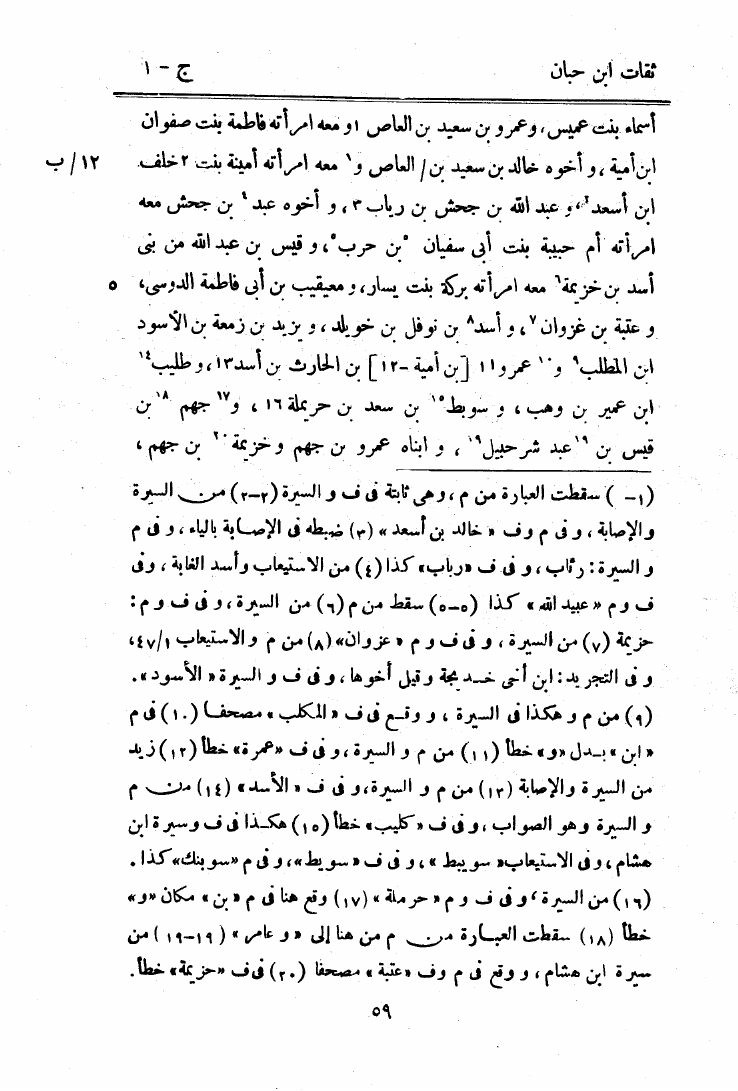 ثقات ابن حبان ج - ١
أسماء بنت عميس، وعمرو بن سعيد بن العاص ١و معه امرأته فاطمة بنت صفوان
ابن أمية، و أخوه خالد بن سعيد بن/ العاص و١ معه امرأته أمينة بنت ٢خلف ١٢/ ب
ابن أسعد٢، و عبد الله بن جحش بن رياب٣، و أخوه عبد٤ بن جحش معه
امرأته أم حبيبة بنت أبى سفيان ٥بن حرب٥، و قيس بن عبد الله من بنى
أسد بن خزيمة٦ معه امرأته بركة بنت يسار، و معيقيب بن أبى فاطمة الدوسى، ٥
و عتبة بن غزوان٧، و أسد٨ بن نوفل بن خويلد، و يزيد بن زمعة بن الأسود
ابن المطلب٩ و١٠ عمرو١١ [بن أمية -١٢] بن الحارث بن أسد١٣، و طليب١٤
ابن عمير بن وهب، و سويبط١٥ بن سعد بن حريملة١٦، و١٧ جهم١٨ بن
قيس بن ١٩عبد شرحبيل١٩، و ابناه عمرو بن جهم و خزيمة٢٠ بن جهم،
(١- ) سقطت العبارة من م، وهى ثابتة فى ف و السيرة (٢-٢) من السيرة
والإصابة، و فى م وف « خالد بن أسعد » (٣) ضبطه فى الإصابة بالياء، و فى م
و السيرة: رئاب، و فى ف «رباب» كذا (٤) من الاستيعاب وأسد الغابة، وفى
ف و م « عبيد الله » كذا (٥-٥) سقط من م (٦) من السيرة، و فى ف و م:
حزيمة (٧) من السيرة، و فى ف و م « عزوان» (٨) من م والاستيعاب ٤٧/١،
و فى التجريد: ابن أخى خديجة وقيل أخوها، و فى ف و السيرة « الأسود».
(٩) من م و هكذا فى السيرة، و وقع فى ف « المكلب » مصحفا (١٠) فى م
« ابن » بدل «و» خطأ (١١) من م و السيرة، و فى ف «عمرة» خطأ (١٢) زيد
من السيرة والإصابة (١٣) من م و السيرة، و فى ف « الأسد » (١٤) من م
و السيرة وهو الصواب، و فى ف « كليب» خطأ (١٥) هكذا فى ف وسيرة ابن
هشام، و فى الاستيعاب« سويبط »، و فى ف «سويط»، و فى م «سوبنك» كذا.
(١٦) من السيرة، و فى ف و م « حرملة » (١٧) وقع هنا فى م « بن » مكان «و»
خطأ (١٨) سقطت العبارة من م من هنا إلى « و عامر » (١٩-١٩) من
سيرة ابن هشام، و وقع فى م وف «عتبة » مصحفا (٢٠) فى ف «حزيمة» خطأ.
٥٩